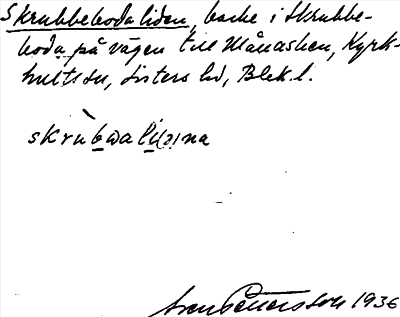 Skrubbebodaliden, backe i Skrubbe-
boda på vägen till Månasken, Kyrk-
hultssn, Listers hd, Blek.l.
Sven Pettersson 1936